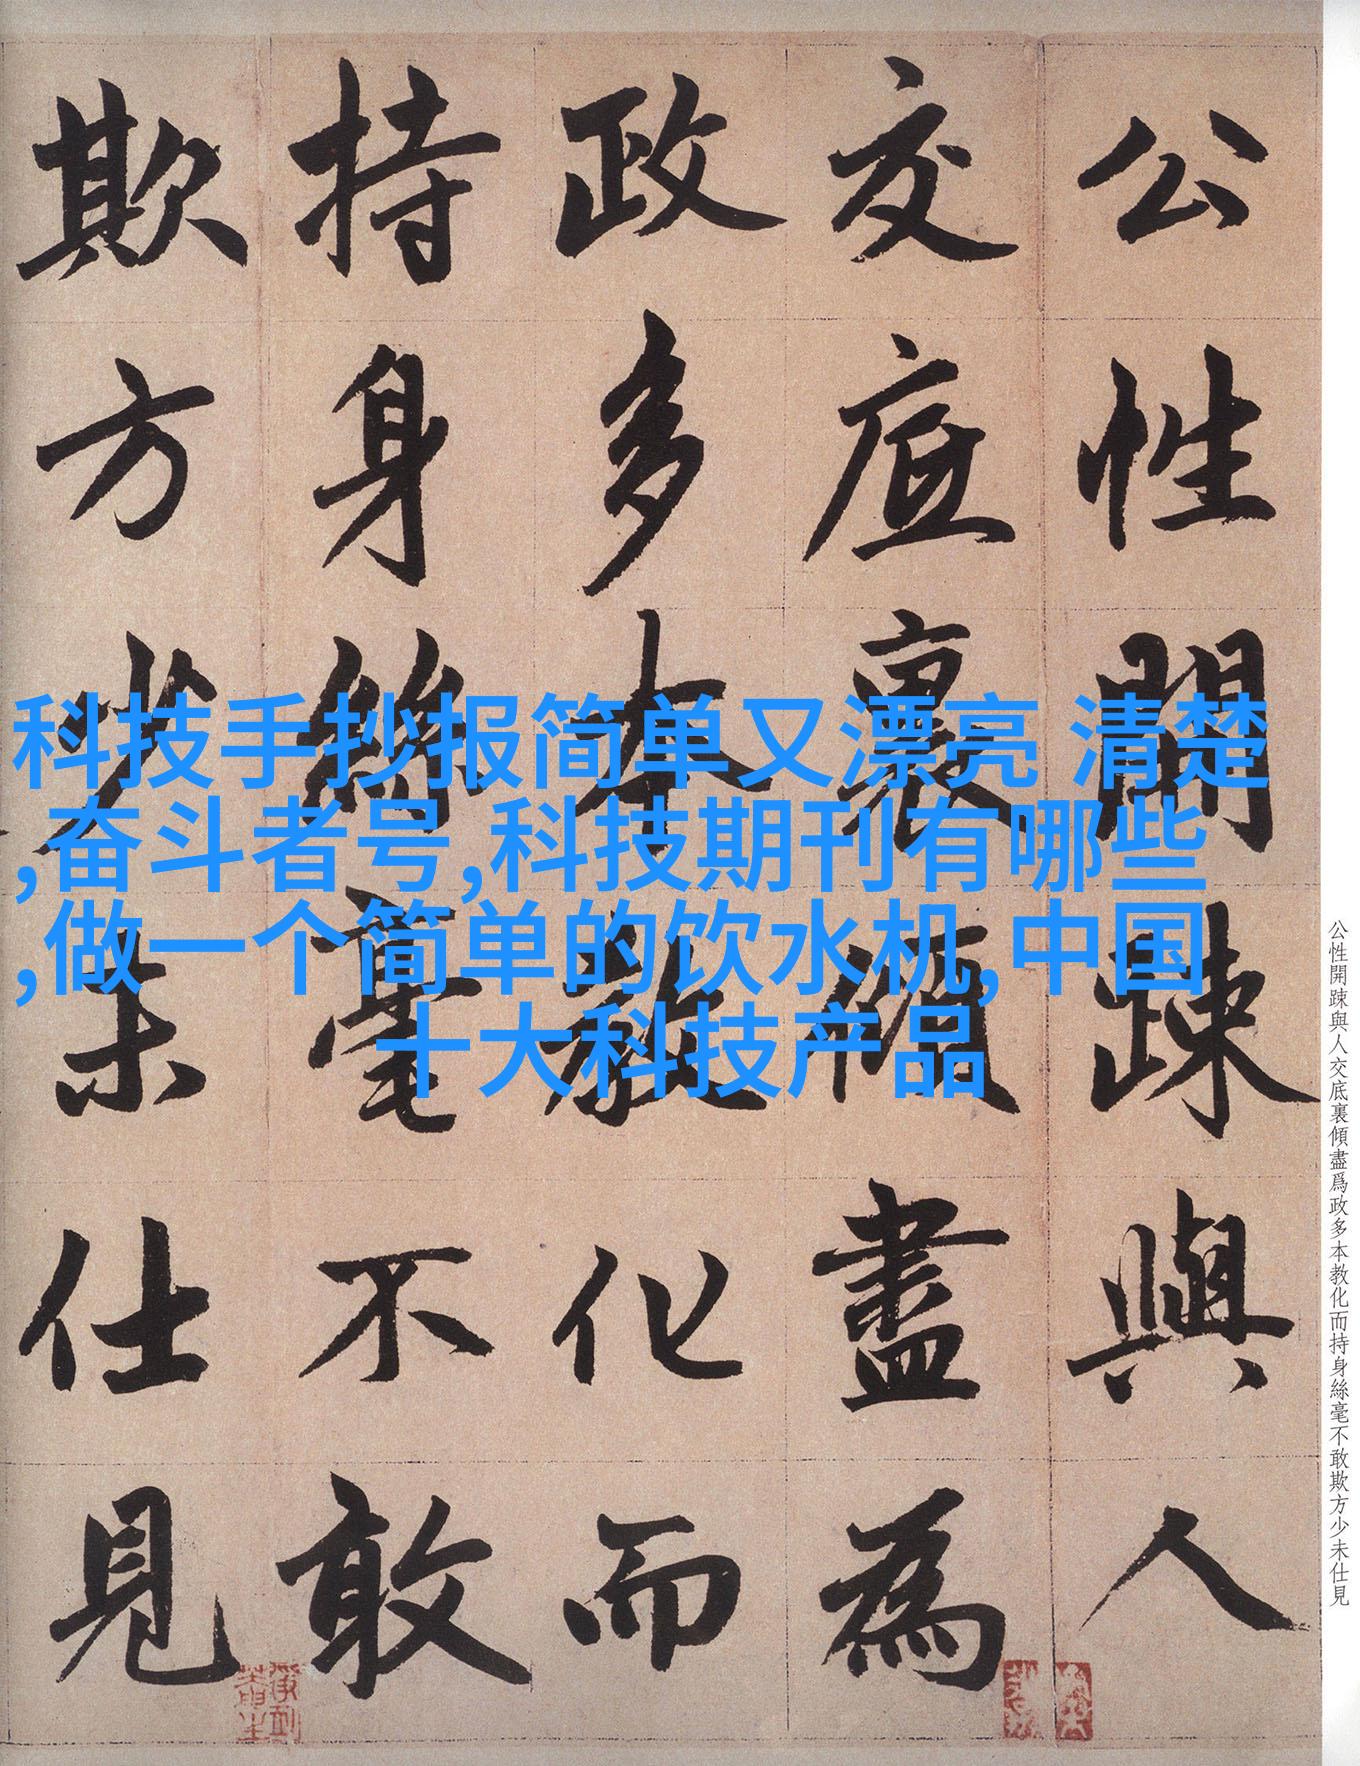 公性開踈與人
交底裏傾盡為
政多本教化而
持身絲毫不敢
欺方少未仕見
科技手抄报简单又漂亮 清楚
,奋斗者号,科技期刊有哪些
,做一个简单的饮水机,中国
十大科技产品
公性開踈與人交底裏傾盡爲政多本教化而持身絲毫不敢欺方少未仕見